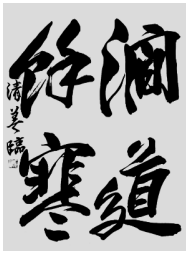 澗道
餘寒
清美臨